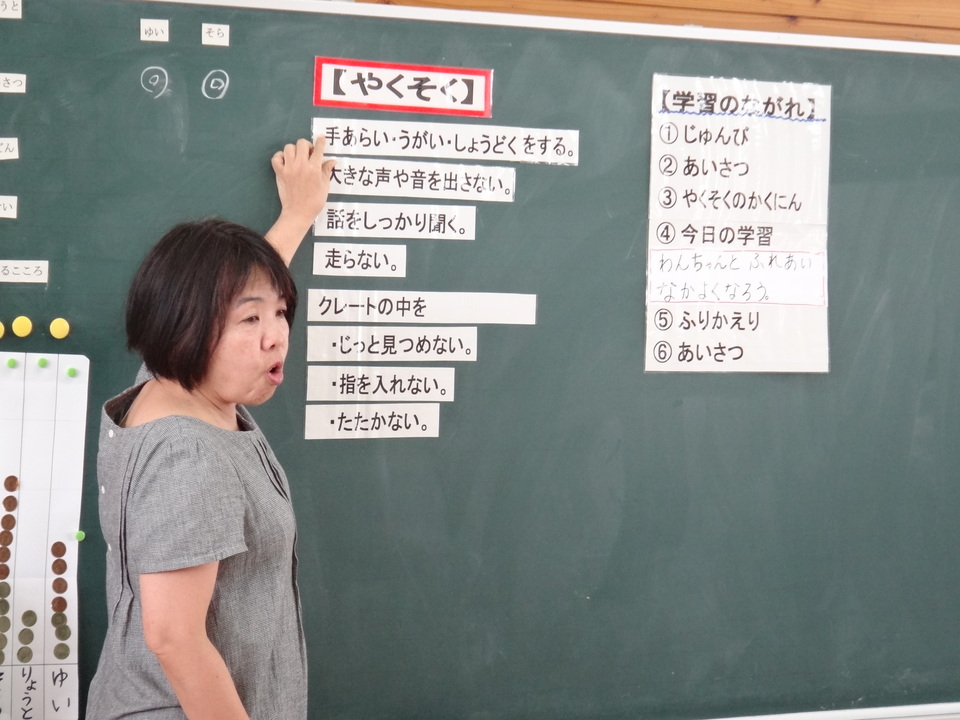 ゆい
そら
【やくそく】
手あらい・うがい・しょうどくをする。
大きな声や音を出さない。
話をしっかり聞く。
走らない。
クレートの中を
・じっと見つめない。
・指を入れない。
・たたかない。
【学習のながれ】
① じゅんび
② あいさつ
③ やくそくのかくにん
④ 今日の学習
わんちゃんと ふれあい
なかよくなろう。
⑤ ふりかえり
⑥ あいさつ
りょうと
ゆい